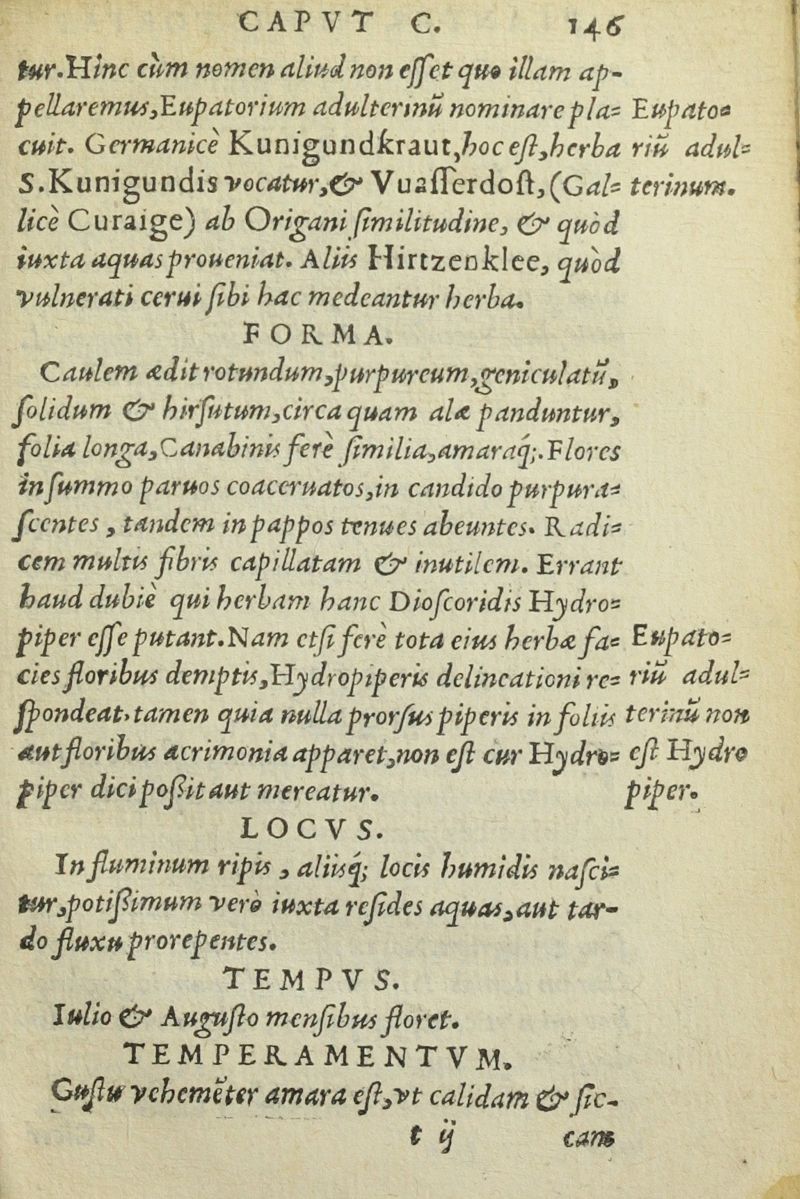 CAPVT C. 146
tur. Hinc cùm nomen aliud non eſſet quo illam ap-
pellaremus, Eupatorium adulterinũ nominare pla-
cuit. Germanicè Kunigundkraut, hoc eſt, herba
S. Kunigundis vocatur, & Vuaſſerdoſt, (Gal-
licè Curaige) ab Origani ſimilitudine, & quòd
iuxta aquas proueniat. Aliis Hirtzenklee, quòd
vulnerati cerui ſibi hac medeantur herba.
Eupato-
riũ adul-
terinum.
FORMA.
Caulem ædit rotundum, purpureum, geniculatũ,
ſolidum & hirſutum, circa quam alæ panduntur,
folia longa, Canabinis ferè ſimilia, amaraq́;. Flores
in ſummo paruos coaceruatos, in candido purpura-
ſcentes, tandem in pappos tenues abeuntes. Radi-
cem multis fibris capillatam & inutilem. Errant
haud dubiè qui herbam hanc Dioſcoridis Hydro-
piper eſſe putant. Nam etſi ferè tota eius herbæ fa-
cies floribus demptis, Hydropiperis delineationi re-
ſpondeat, tamen quia nulla prorſus piperis in foliis
aut floribus acrimonia apparet, non eſt cur Hydro-
piper dici poßit aut mereatur.
Eupato-
riũ adul-
terinũ non
eſt Hydro
piper.
LOCVS.
In fluminum ripis, aliisq́; locis humidis naſci-
tur, potißimum verò iuxta reſides aquas, aut tar-
do fluxu prorepentes.
TEMPVS.
Iulio & Auguſto menſibus floret.
TEMPERAMENTVM.
Guſtu vehemẽter amara eſt, vt calidam & ſic-
t ij cam